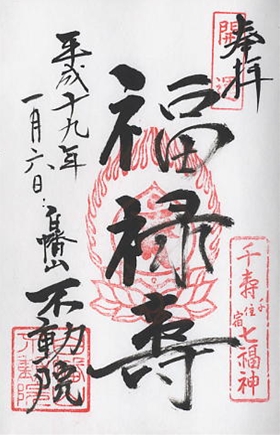 奉拝
開運
千寿七福神
千住宿
福禄寿
平成十九年
一月六日
白幡山
不動院